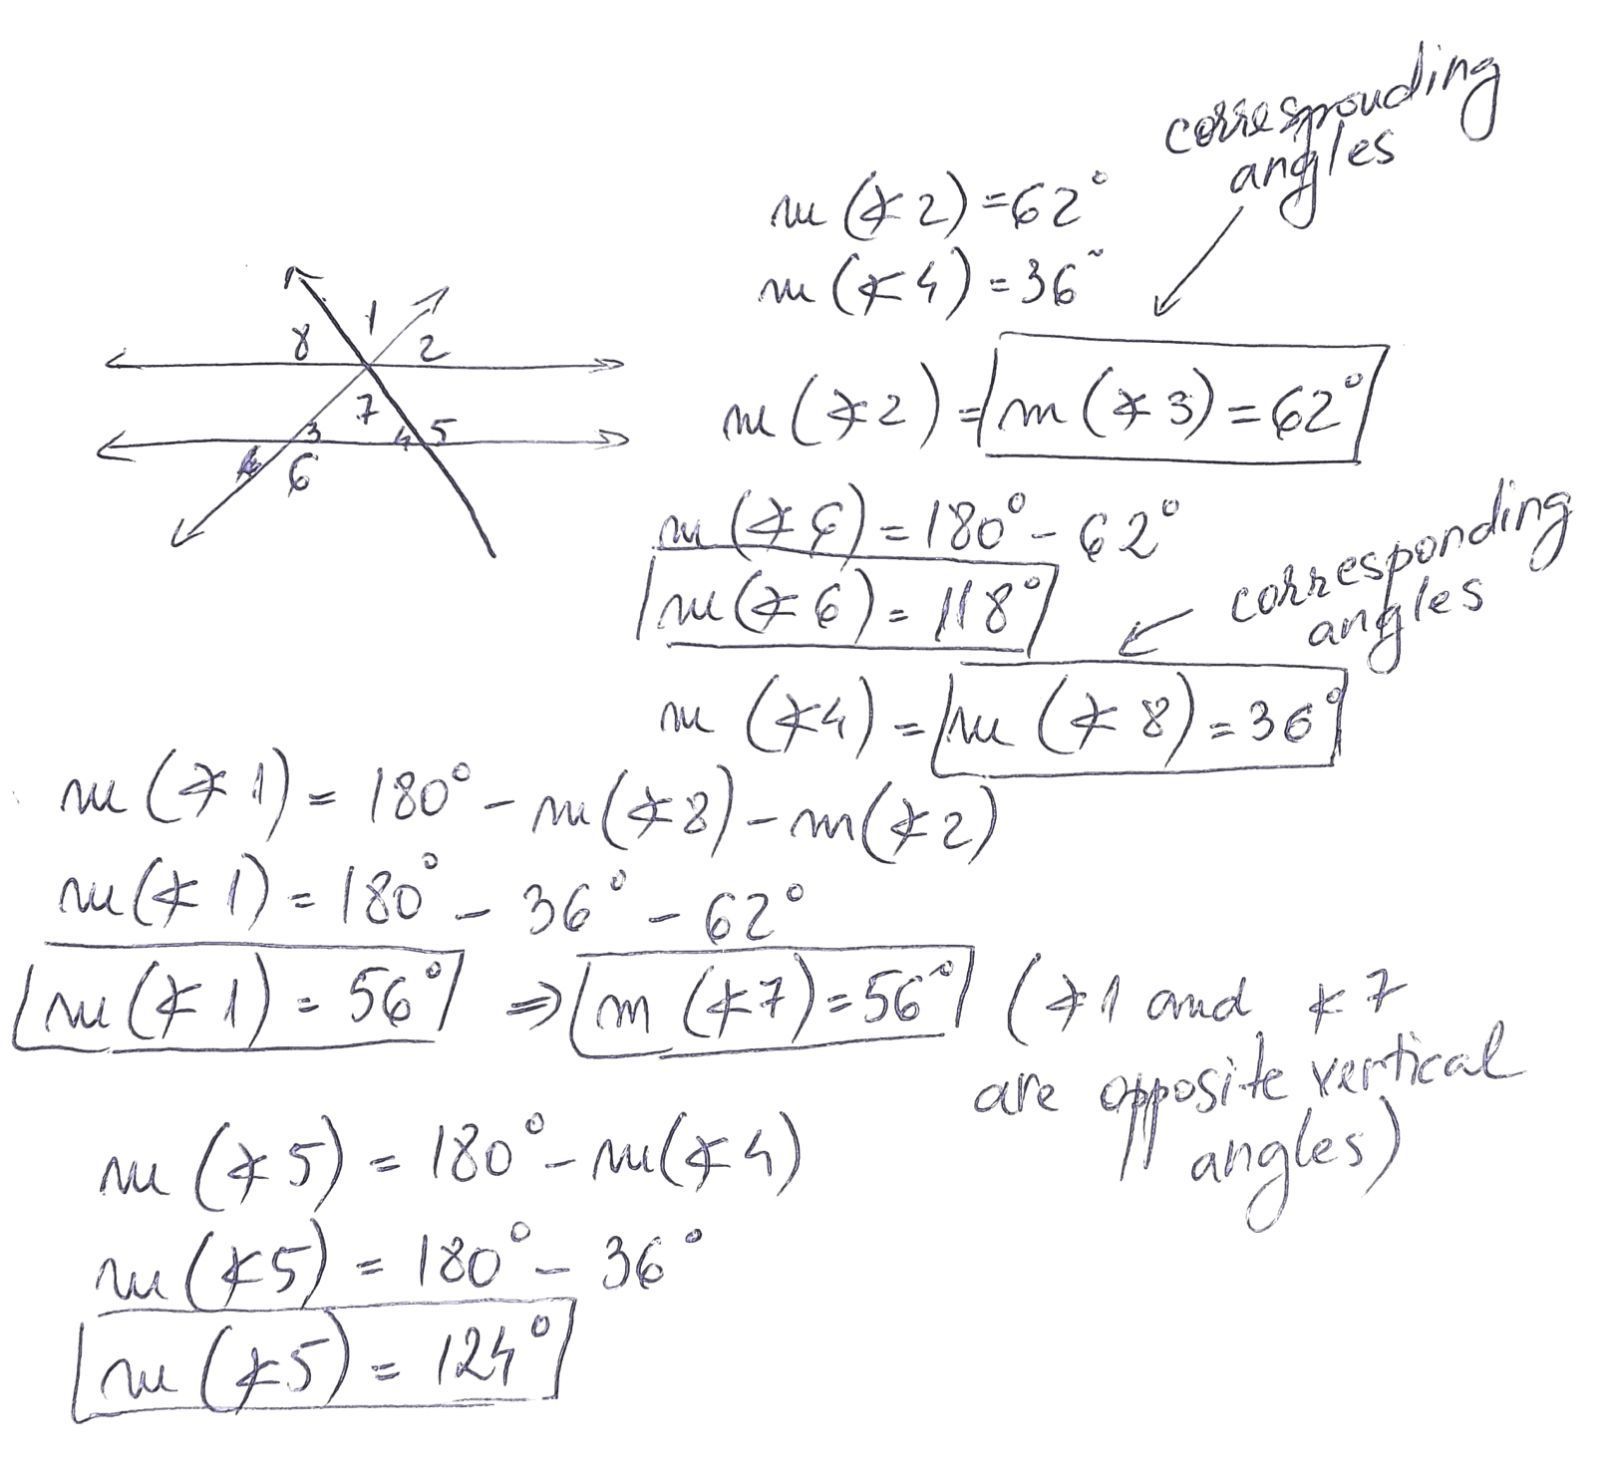 corresponding
angles
m (∡2) = 62°
m (∡4) = 36°
1
8 2
7
3 4 5
6
m (∡2) = m (∡3) = 62°
m (∡6) = 180° - 62°
m (∡6) = 118°
corresponding
angles
m (∡4) = m (∡8) = 36°
m (∡1) = 180° - m (∡8) - m (∡2)
m (∡1) = 180° - 36° - 62°
m (∡1) = 56° ⇒ m (∡7) = 56° (∡1 and ∡7
are opposite vertical
angles)
m (∡5) = 180° - m (∡4)
m (∡5) = 180° - 36°
m (∡5) = 124°